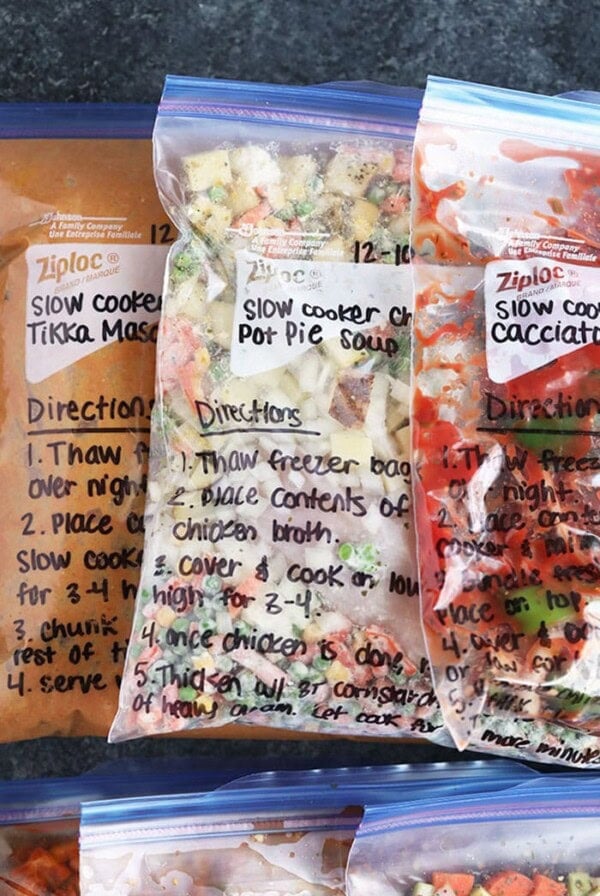 Johnson
A Family Company
Une Entreprise Familiale
12
Ziploc®
BRAND/MARQUE
SLOW COOKE
TIKKA MASA
Directions
1. Thaw f
over nigh
2. Place co
slow cook
for 3-4 h
3. chunk
rest of t
4. serve
Johnson
A Family Company
Une Entreprise Familiale
12-10
Ziploc®
BRAND/MARQUE
SLOW COOKER CH
Pot Pie Soup
Directions
1. Thaw freezer bag
2. Place contents of
chicken broth.
3. cover & cook on low
high for 3-4.
4. once chicken is done,
5. Thicken w/ 3T cornstarch
of heavy cream. Let cook for
A Family Company
Une Entreprise Familiale
Ziploc®
BRAND/MARQUE
SLOW COO
CACCIATO
Direction
1. Thaw freez
night.
2. Place conte
cooker &
fres
Place on top
4. cover & co
or low for
5.
more minutes